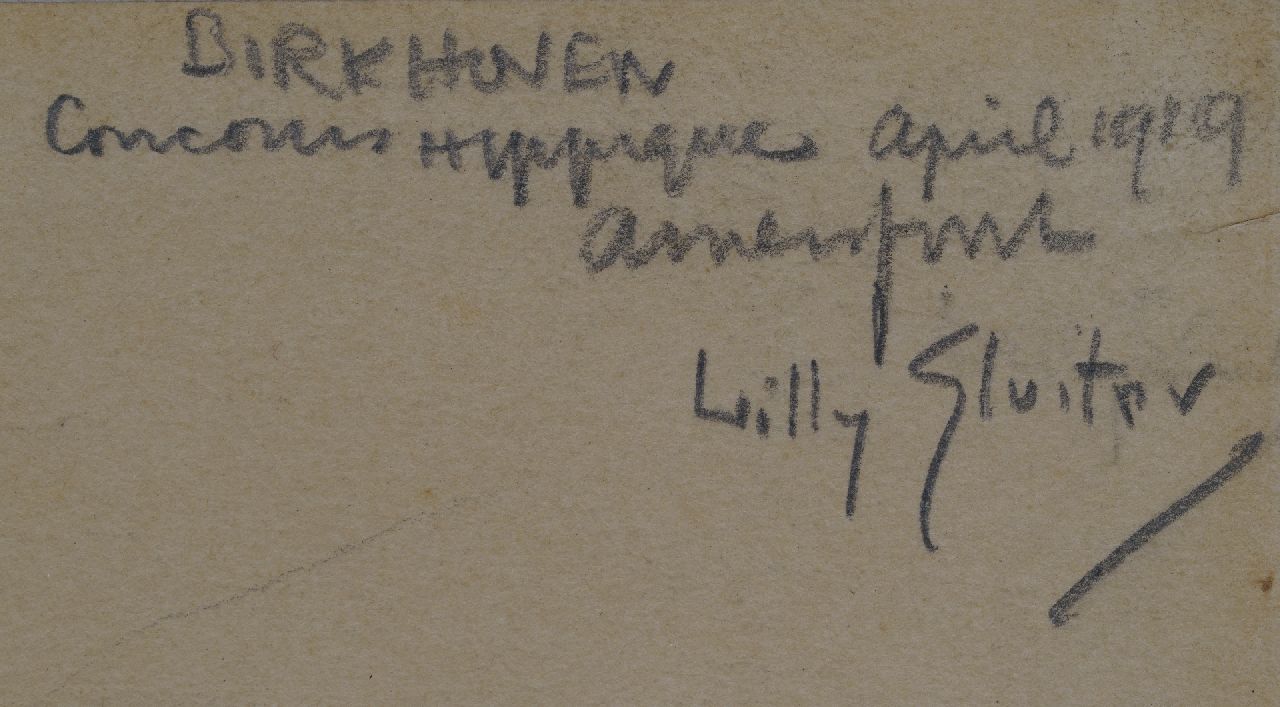 BIRKHOVEN
Concours Hippique April 1919
Amersfoort
Willy Sluiter